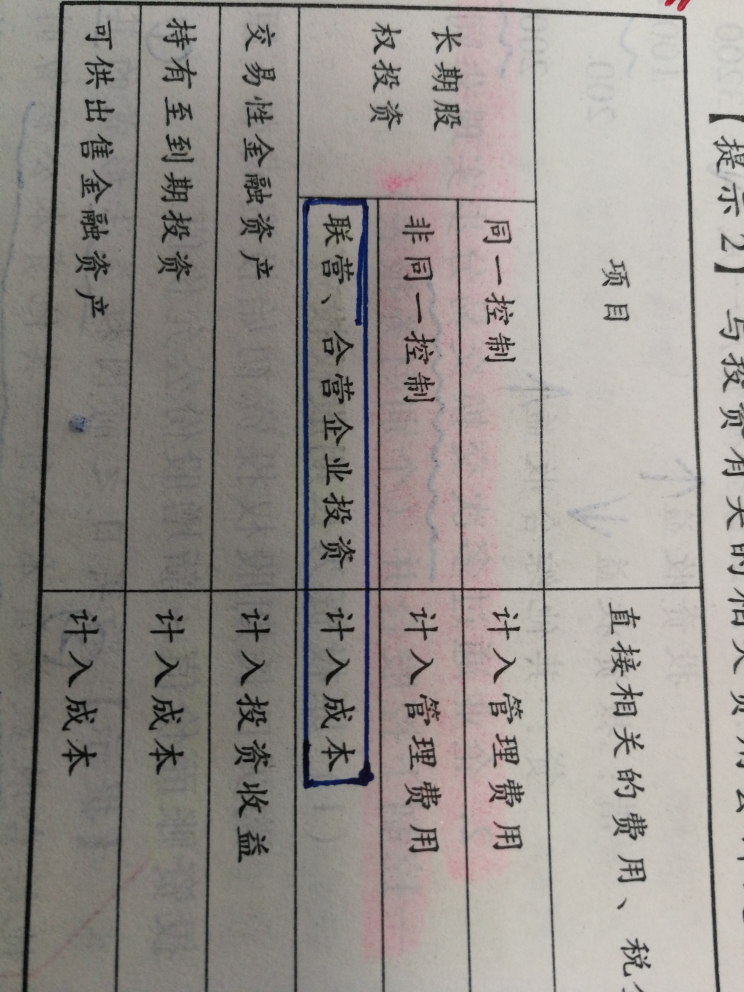 【提示2】与投资有关的相关费用会计
项目 直接相关的费用、税
长期股权投资 同一控制 计入管理费用
非同一控制 计入管理费用
联营、合营企业投资 计入成本
交易性金融资产 计入投资收益
持有至到期投资 计入成本
可供出售金融资产 计入成本